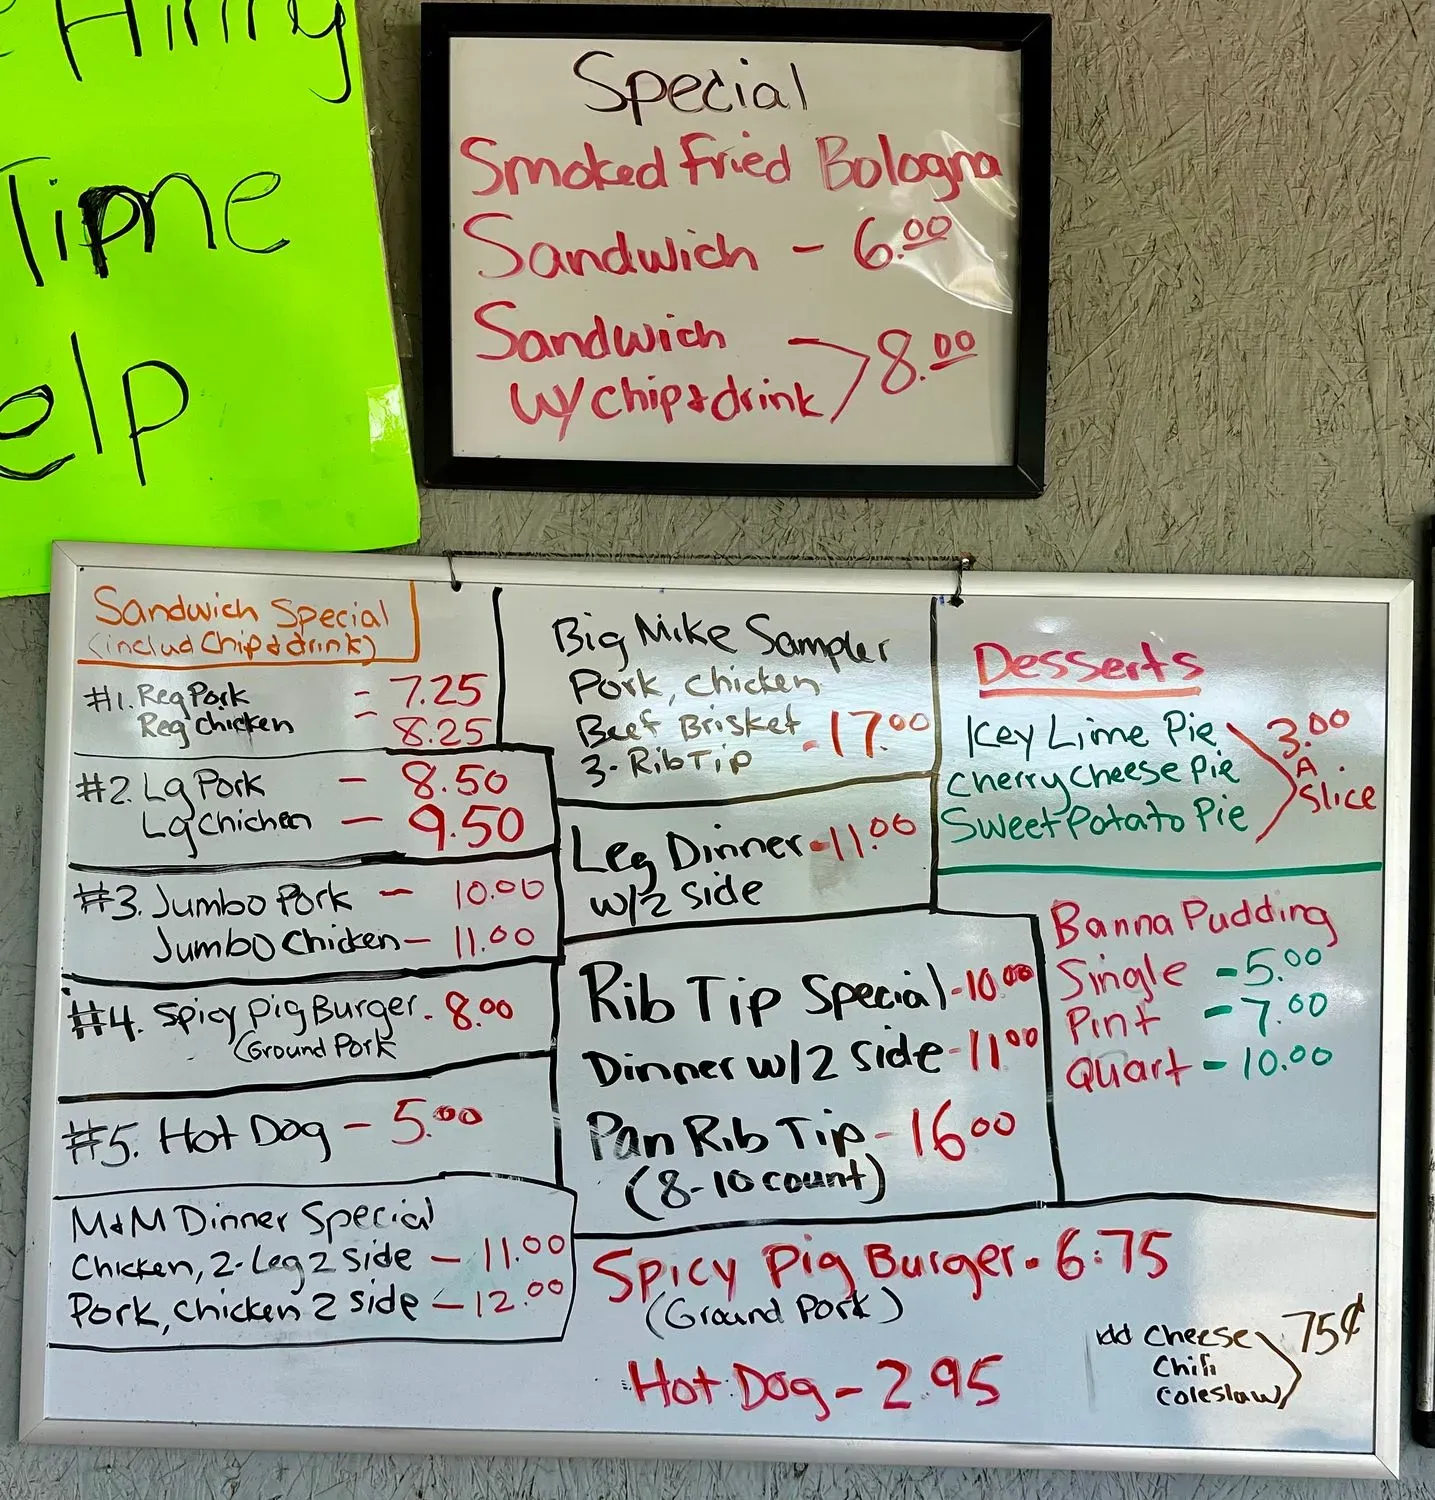 Hiring
Time
elp
Special
Smoked Fried Bologna
Sandwich - 6.00
Sandwich
w/ chip & drink > 8.00
Sandwich Special
(includ Chip & drink)
#1. Reg Pork - 7.25
Reg Chicken - 8.25
#2. Lg Pork - 8.50
Lg Chichen - 9.50
#3. Jumbo Pork - 10.00
Jumbo Chicken - 11.00
#4. Spicy Pig Burger - 8.00
(Ground Pork
#5. Hot Dog - 5.00
M&M Dinner Special
Chicken, 2-Leg 2 side - 11.00
Pork, chicken 2 side - 12.00
Big Mike Sampler
Pork, chicken
Beef Brisket - 17.00
3-Rib Tip
Leg Dinner - 11.00
w/2 side
Rib Tip Special - 10.00
Dinner w/2 side - 11.00
Pan Rib Tip - 16.00
(8-10 count)
Spicy Pig Burger - 6.75
(Ground Pork)
Hot Dog - 2.95
Desserts
Key Lime Pie
Cherry Cheese Pie
Sweet Potato Pie
3.00
A
Slice
Banna Pudding
Single - 5.00
Pint - 7.00
Quart - 10.00
dd Cheese
Chili
Coleslaw
75¢